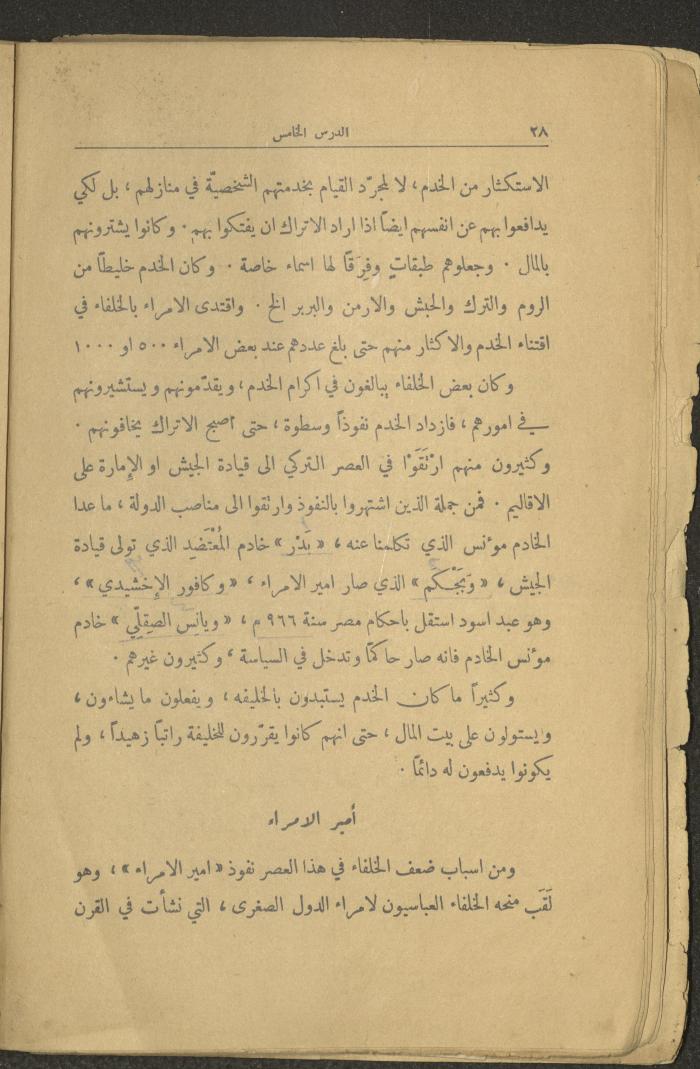 ٢٨ الدرس الخامس
الاستكثار من الخدم، لا لمجرّد القيام بخدمتهم الشخصيّة في منازلهم، بل لكي
يدافعوا بهم عن انفسهم ايضاً اذا اراد الاتراك ان يفتكوا بهم. وكانوا يشترونهم
بالمال. وجعلوهم طبقاتٍ وفِرَقاً لها اسماء خاصة. وكان الخدم خليطاً من
الروم والترك والحبش والارمن والبربر الخ. واقتدى الامراء بالخلفاء في
اقتناء الخدم والاكثار منهم حتى بلغ عددهم عند بعض الامراء ٥٠٠ او ١٠٠٠
وكان بعض الخلفاء يبالغون في اكرام الخدم، ويقدّمونهم ويستشيرونهم
في امورهم، فازداد الخدم نفوذاً وسطوة، حتى اصبح الاتراك يخافونهم.
وكثيرون منهم ارْتَقَوْا في العصر التركي الى قيادة الجيش او الإمارة على
الاقاليم. فمن جملة الذين اشتهروا بالنفوذ وارتقوا الى مناصب الدولة، ما عدا
الخادم موٴنس الذي تكلمنا عنه، «بَدْر» خادم المُعْتَضِد الذي تولى قيادة
الجيش، «وَبَجْكَم» الذي صار امير الامراء، «وكافور الإخشيدي»،
وهو عبد اسود استقل باحكام مصر سنة ٩٦٦ م، «ويانِس الصِقِلّي» خادم
موٴنس الخادم فانه صار حاكمًا وتدخل في السياسة، وكثيرون غيرهم.
وكثيراً ما كان الخدم يستبدون بالخليفه، ويفعلون ما يشاءون،
ويستولون على بيت المال، حتى انهم كانوا يقرّرون للخليفة راتباً زهيداً، ولم
يكونوا يدفعون له دائماً.
أمير الامراء
ومن اسباب ضعف الخلفاء في هذا العصر نفوذ «امير الامراء»، وهو
لَقَب منحه الخلفاء العباسيون لامراء الدول الصغرى، التي نشأت في القرن